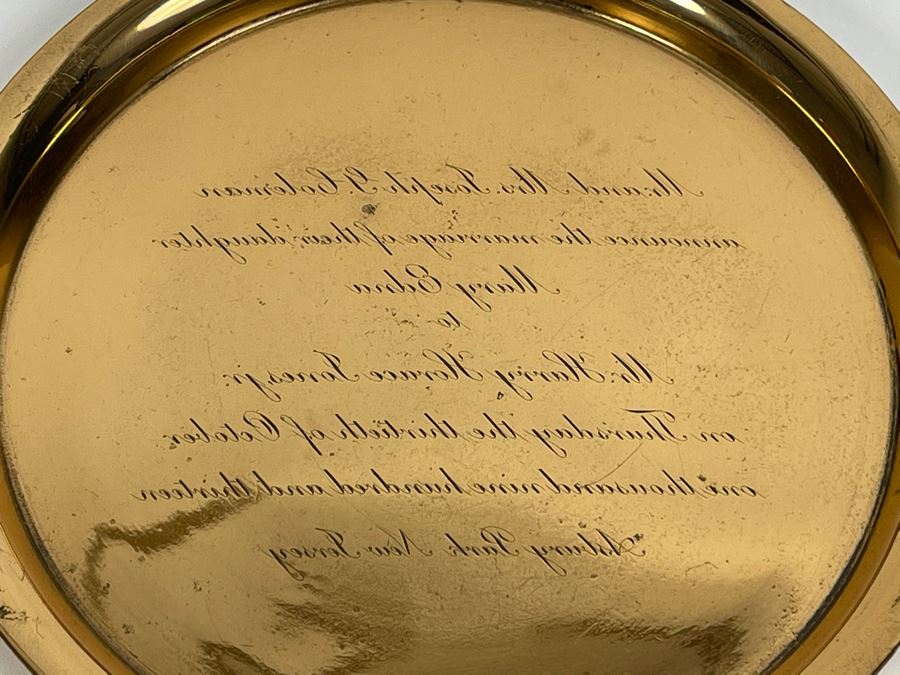 Mr. and Mrs. Joseph G. Coleman
announce the marriage of their daughter
Mary Edna
to
Mr. Harry Horace Jones, jr.
on Thursday the thirtieth of October
one thousand nine hundred and thirteen
Asbury Park, New Jersey